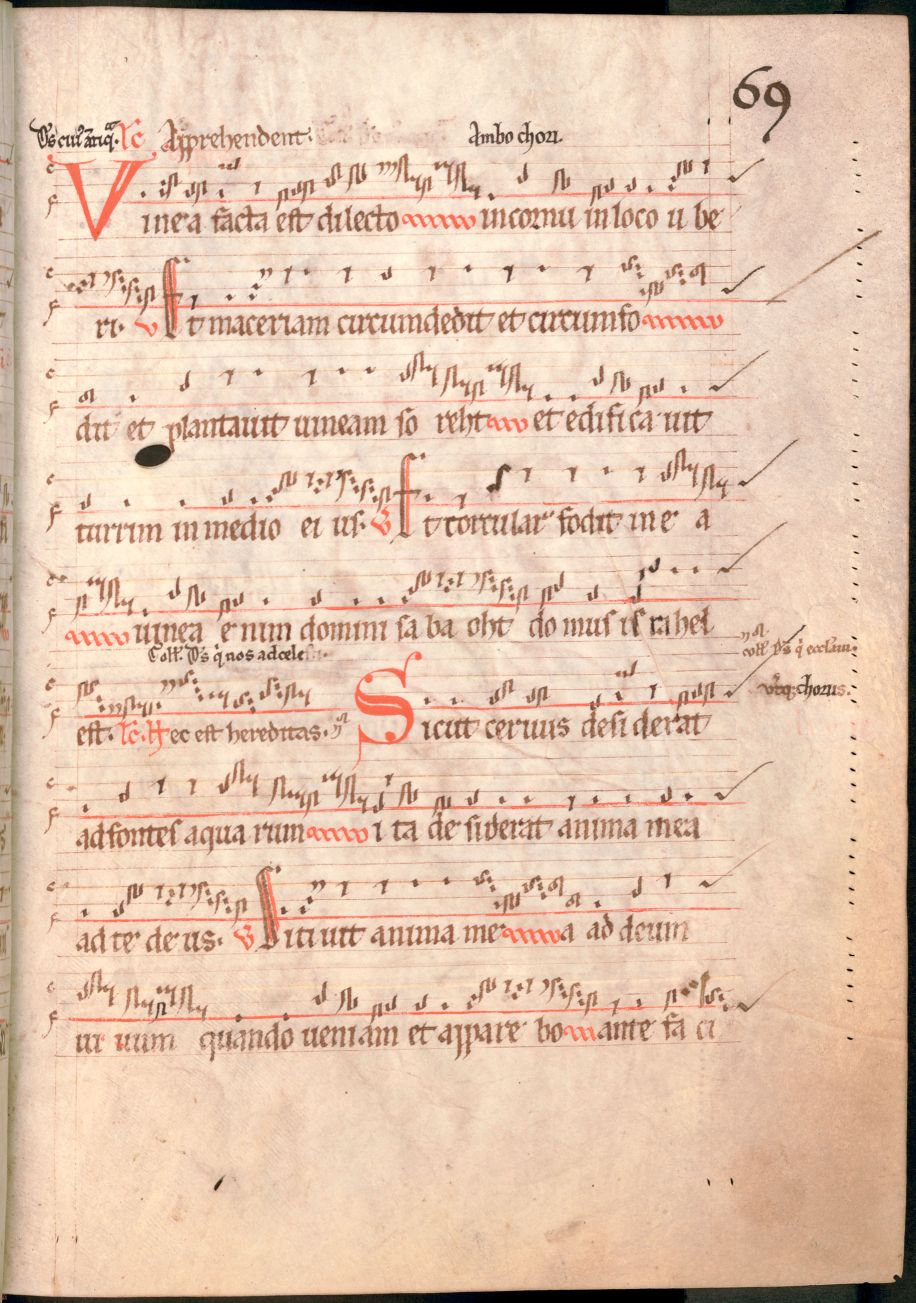 69
Apprehendent. Ambo chori.
Vinea facta est dilecto in cornu in loco u be
ri. V Et maceriam circumdedit et circumfo
dit et plantauit uineam so reht et edifica uit
turrim in medio ei us. V Et torcular fodit in e a
uinea e nim domini sa ba oht do mus israhel
Coll. Ds q nos ad cele
coll. Ds q ecclam
est. Lc. Hec est hereditas. Sicut ceruus desiderat
chorus.
ad fontes aqua rum i ta de siderat anima mea
ad te de us. V Siti uit anima me a ad deum
ui uum quando ueniam et appare bo ante fa ci